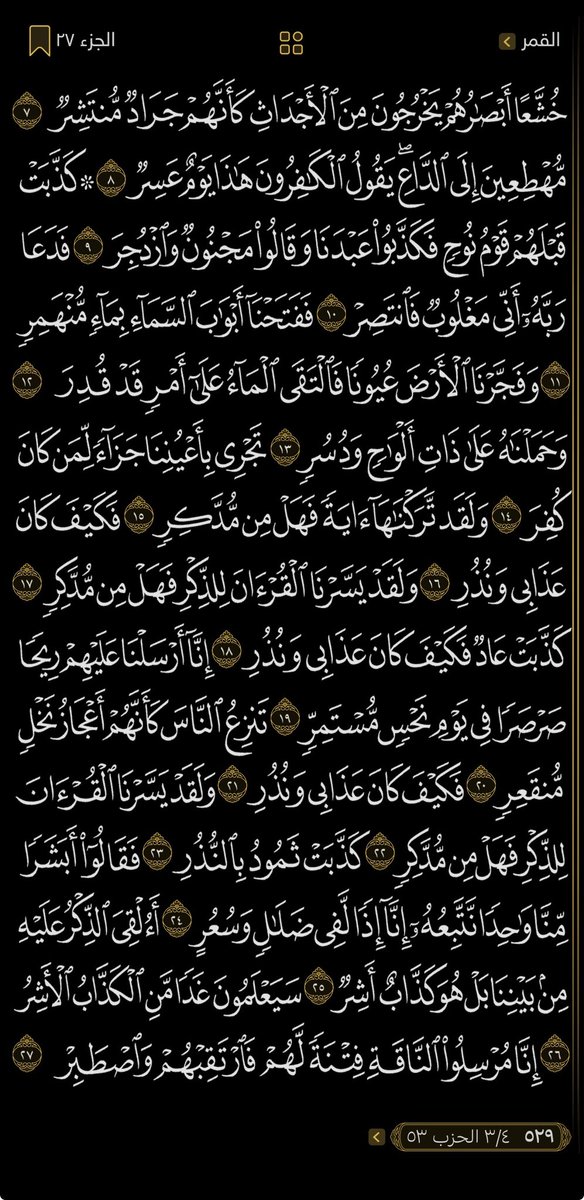 القمر
الجزء ٢٧
خُشَّعًا أَبْصَٰرُهُمْ يَخْرُجُونَ مِنَ ٱلْأَجْدَاثِ كَأَنَّهُمْ جَرَادٌ مُّنتَشِرٌ ٧
مُّهْطِعِينَ إِلَى ٱلدَّاعِ ۖ يَقُولُ ٱلْكَٰفِرُونَ هَٰذَا يَوْمٌ عَسِرٌ ٨ ۞ كَذَّبَتْ
قَبْلَهُمْ قَوْمُ نُوحٍ فَكَذَّبُوا۟ عَبْدَنَا وَقَالُوا۟ مَجْنُونٌ وَٱزْدُجِرَ ٩ فَدَعَا
رَبَّهُۥٓ أَنِّى مَغْلُوبٌ فَٱنتَصِرْ ١٠ فَفَتَحْنَآ أَبْوَٰبَ ٱلسَّمَآءِ بِمَآءٍ مُّنْهَمِرٍ
١١ وَفَجَّرْنَا ٱلْأَرْضَ عُيُونًا فَٱلْتَقَى ٱلْمَآءُ عَلَىٰٓ أَمْرٍ قَدْ قُدِرَ ١٢
وَحَمَلْنَٰهُ عَلَىٰ ذَاتِ أَلْوَٰحٍ وَدُسُرٍ ١٣ تَجْرِى بِأَعْيُنِنَا جَزَآءً لِّمَن كَانَ
كُفِرَ ١٤ وَلَقَد تَّرَكْنَٰهَآ ءَايَةً فَهَلْ مِن مُّدَّكِرٍ ١٥ فَكَيْفَ كَانَ
عَذَابِى وَنُذُرِ ١٦ وَلَقَدْ يَسَّرْنَا ٱلْقُرْءَانَ لِلذِّكْرِ فَهَلْ مِن مُّدَّكِرٍ ١٧
كَذَّبَتْ عَادٌ فَكَيْفَ كَانَ عَذَابِى وَنُذُرِ ١٨ إِنَّآ أَرْسَلْنَا عَلَيْهِمْ رِيحًا
صَرْصَرًا فِى يَوْمِ نَحْسٍ مُّسْتَمِرٍّ ١٩ تَنزِعُ ٱلنَّاسَ كَأَنَّهُمْ أَعْجَازُ نَخْلٍ
مُّنقَعِرٍ ٢٠ فَكَيْفَ كَانَ عَذَابِى وَنُذُرِ ٢١ وَلَقَدْ يَسَّرْنَا ٱلْقُرْءَانَ
لِلذِّكْرِ فَهَلْ مِن مُّدَّكِرٍ ٢٢ كَذَّبَتْ ثَمُودُ بِٱلنُّذُرِ ٢٣ فَقَالُوٓا۟ أَبَشَرًا
مِّنَّا وَٰحِدًا نَّتَّبِعُهُۥٓ إِنَّآ إِذًا لَّفِى ضَلَٰلٍ وَسُعُرٍ ٢٤ أَءُلْقِىَ ٱلذِّكْرُ عَلَيْهِ
مِنۢ بَيْنِنَا بَلْ هُوَ كَذَّابٌ أَشِرٌ ٢٥ سَيَعْلَمُونَ غَدًا مَّنِ ٱلْكَذَّابُ ٱلْأَشِرُ
٢٦ إِنَّا مُرْسِلُوا۟ ٱلنَّاقَةِ فِتْنَةً لَّهُمْ فَٱرْتَقِبْهُمْ وَٱصْطَبِرْ ٢٧
٥٢٩ ٣/٤ الحزب ٥٣